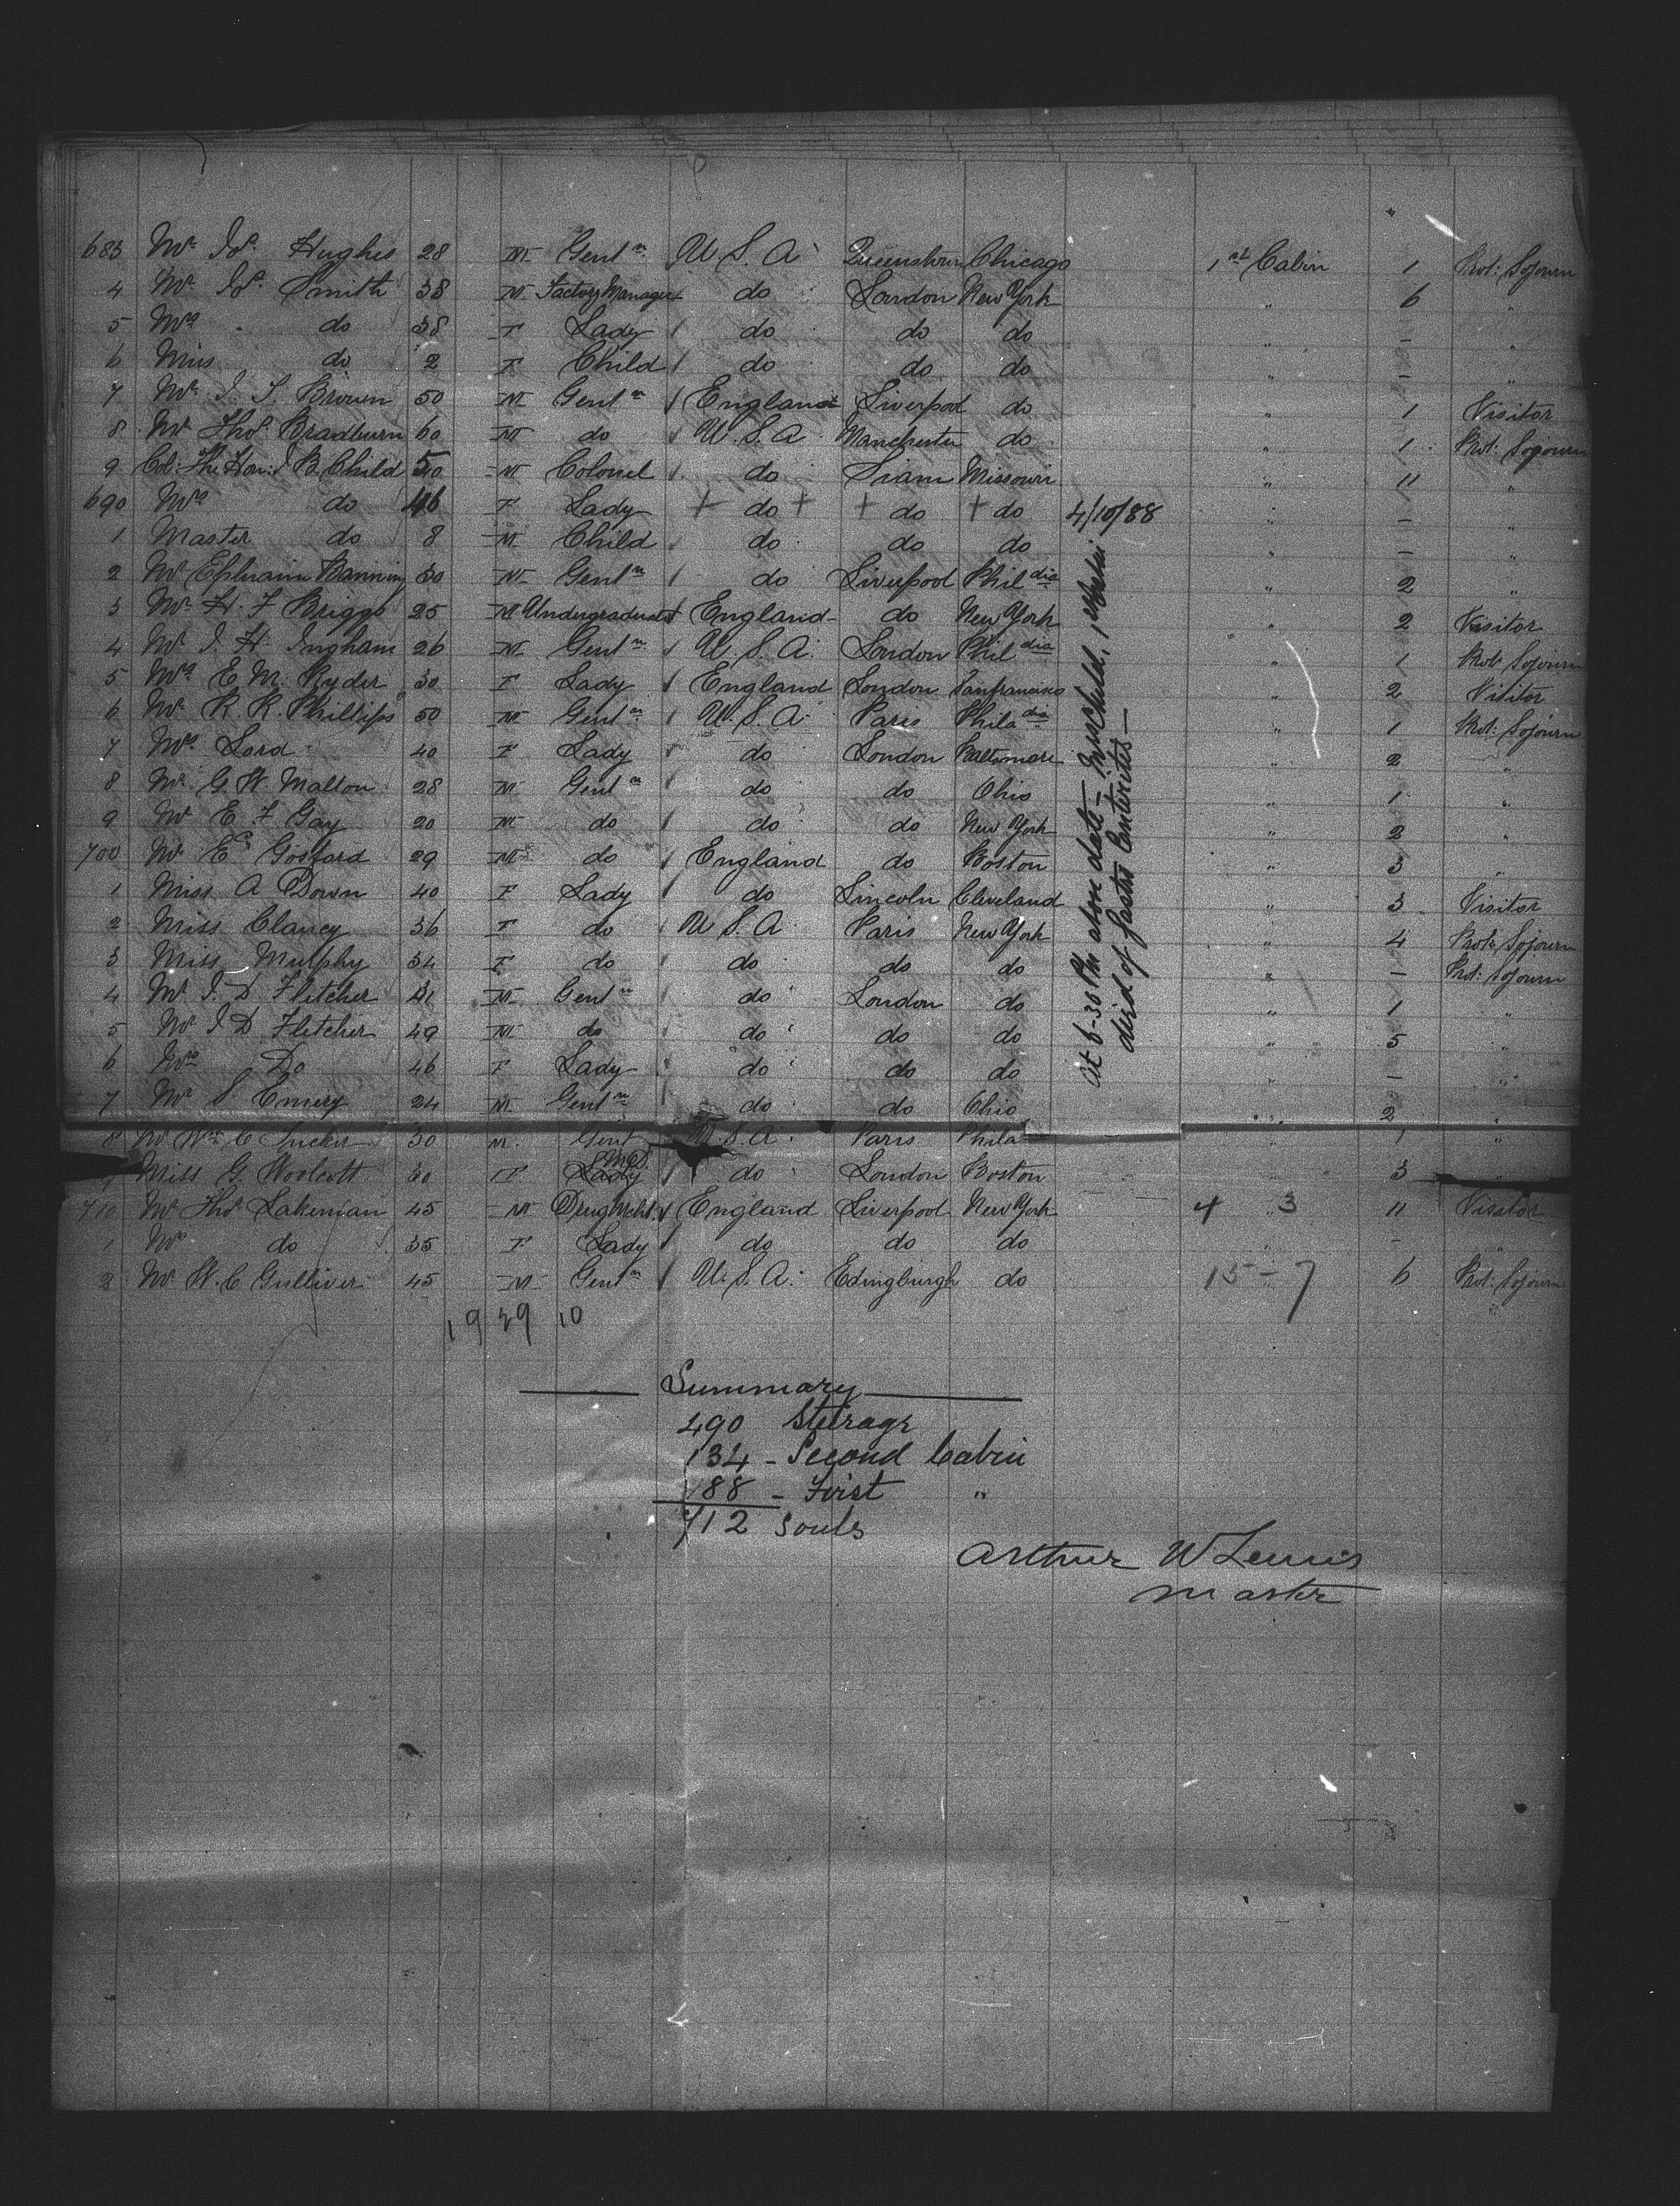 683 Mr Jos. Hughes 28 M Gentn U.S.A. Queenstown Chicago 1st Cabin 1 Prot: Sojourn
4 Mr Jos. Smith 38 M Factory Manager do London New York " 6 "
5 Mrs do 38 F Lady do do do " - "
6 Miss do 2 F Child do do do " - "
7 Mr J. S. Brown 50 M Gentn England Liverpool do " 1 Visitor
8 Mr Thos Bradburn 60 M do U.S.A. Manchester do " 1 Prot: Sojourn
9 Col: The Hon: J B. Child 50 M Colonel do Siam Missouri " 11 "
690 Mrs do 46 F Lady + do + + do + do 4/10/88 " - "
1 Master do 8 M Child do do do " - "
2 Mr Ephraim Banning 30 M Gentn do Liverpool Phildia " 2 "
3 Mr H. F Briggs 25 M Undergraduate England do New York " 2 Visitor
4 Mr J. H. Ingham 26 M Gentn U.S.A. London Phildia " 1 Prot: Sojourn
5 Mrs E. M. Ryder 30 F Lady England London Sanfrancisco " 2 Visitor
6 Mr R. R. Phillips 50 M Gentn U.S.A. Paris Philadia " 1 Prot: Sojourn
7 Mrs Lord 40 F Lady do London Baltimore " 2 "
8 Mr G. W. Malton 28 M Gentn do do Ohio " 1 "
9 Mr E. F Gay 20 M do do do New York " 2 "
700 Mr Ed Gosford 29 M do England do Boston " 3 "
1 Miss A Down 40 F Lady do Lincoln Cleveland " 3 Visitor
2 Miss Clancy 36 F do U.S.A. Paris New York " 4 Prot: Sojourn
3 Miss Murphy 34 F do do do do " - Prot: Sojourn
4 Mr J. D. Fletcher 41 M Gentn do London do " 1 "
5 Mr J D. Fletcher 49 M do do do do " 5 "
6 Mrs Do 46 F Lady do do do " - "
7 Mr S Emery 24 M Gentn do do Ohio " 2 "
8 Mr Wm C Tucker 30 M. Gent U.S.A. Paris Phila " 1 "
9 Miss G. Woolcott 30 F Lady M.D. do London Boston " 3 "
710 Mr Thos Lakeman 45 M England Liverpool New York 4 3 11 Visitor
1 Mrs do 35 F Lady do do do " - "
2 Mr W. C Gulliver 45 M Gentn U.S.A. Edingburgh do 15 - 7 6 Prot: Sojourn
At 6-30 Pm above date - Mrs Child, 1st Cabin
died of Gastro Enteritis -
19 29 10
Summary
490 Steerage
134 - Second Cabin
88 - First "
712 Souls
Arthur W Lewis
Master